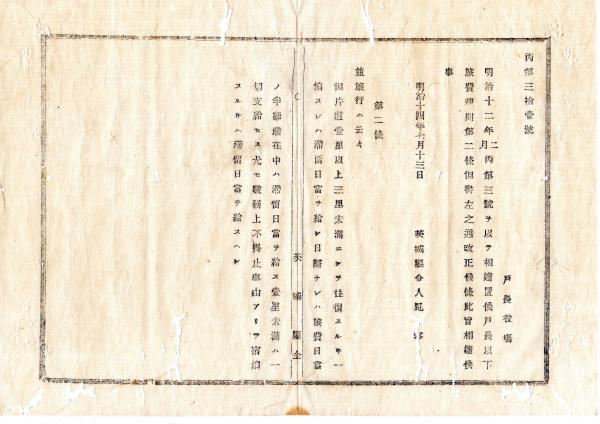 丙第三拾壹號
戸長役場
明治十二年二月丙第三號ヲ以テ相達置候戸長以下
旅費規則第二條但書左之通改正候條此旨相達候
事
明治十四年七月十三日
茨城縣令人見
第二條
並旅行ハ云々
但片道壹里以上三里未滿ニシテ往復スルキハ一
宿スレハ滯留日當ヲ給シ日歸ナレハ旅費日當
ノ半額滯在中ハ滯留日當ヲ給ス壹里未滿ハ一
切支給セス尤モ職務上不得止事由アリテ宿泊
スルキハ滯留日當ヲ給スヘシ
茨城縣令